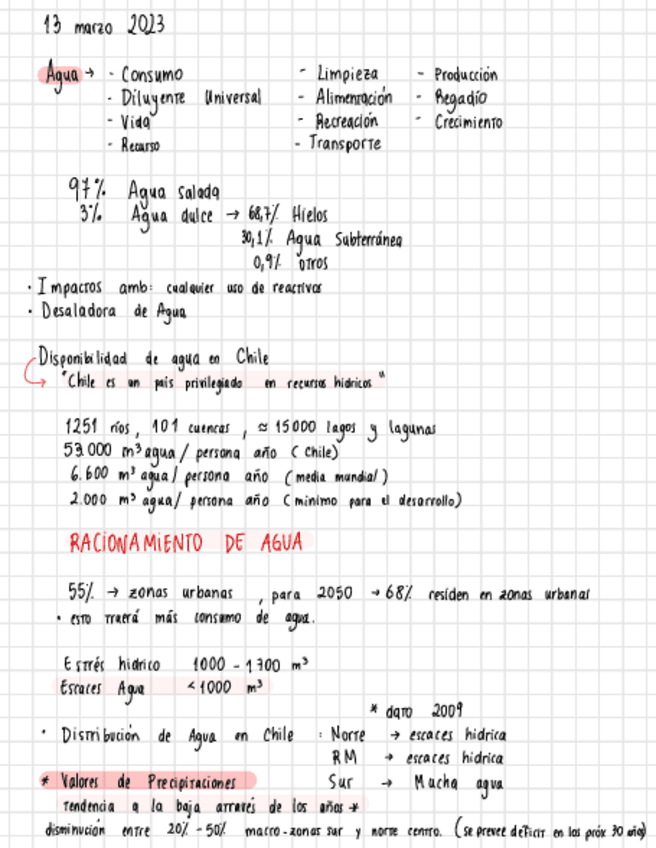 13 marzo 2023
Agua → - Consumo - Limpieza - Producción
- Diluyente Universal - Alimentación - Regadío
- Vida - Recreación - Crecimiento
- Recurso - Transporte
97% Agua salada
3% Agua dulce → 68,7% Hielos
30,1% Agua Subterránea
0,9% otros
· Impactos amb: cualquier uso de reactivos
· Desaladora de Agua
Disponibilidad de agua en Chile
"Chile es un país privilegiado en recursos hídricos"
1251 ríos, 101 cuencas, ≈ 15000 lagos y lagunas
53.000 m³ agua / persona año (Chile)
6.600 m³ agua / persona año (media mundial)
2.000 m³ agua / persona año (mínimo para el desarrollo)
RACIONAMIENTO DE AGUA
55% → zonas urbanas, para 2050 → 68% residen en zonas urbanas
· esto traerá más consumo de agua.
Estrés hídrico 1000 - 1700 m³
Escaces Agua < 1000 m³
* dato 2009
· Distribución de Agua en Chile : Norte → escaces hidrica
RM → escaces hidrica
Sur → Mucha agua
* Valores de Precipitaciones
Tendencia a la baja atravéz de los años *
disminución entre 20% - 50% macro-zonas sur y norte centro. (se prevee déficit en los próx 30 año)